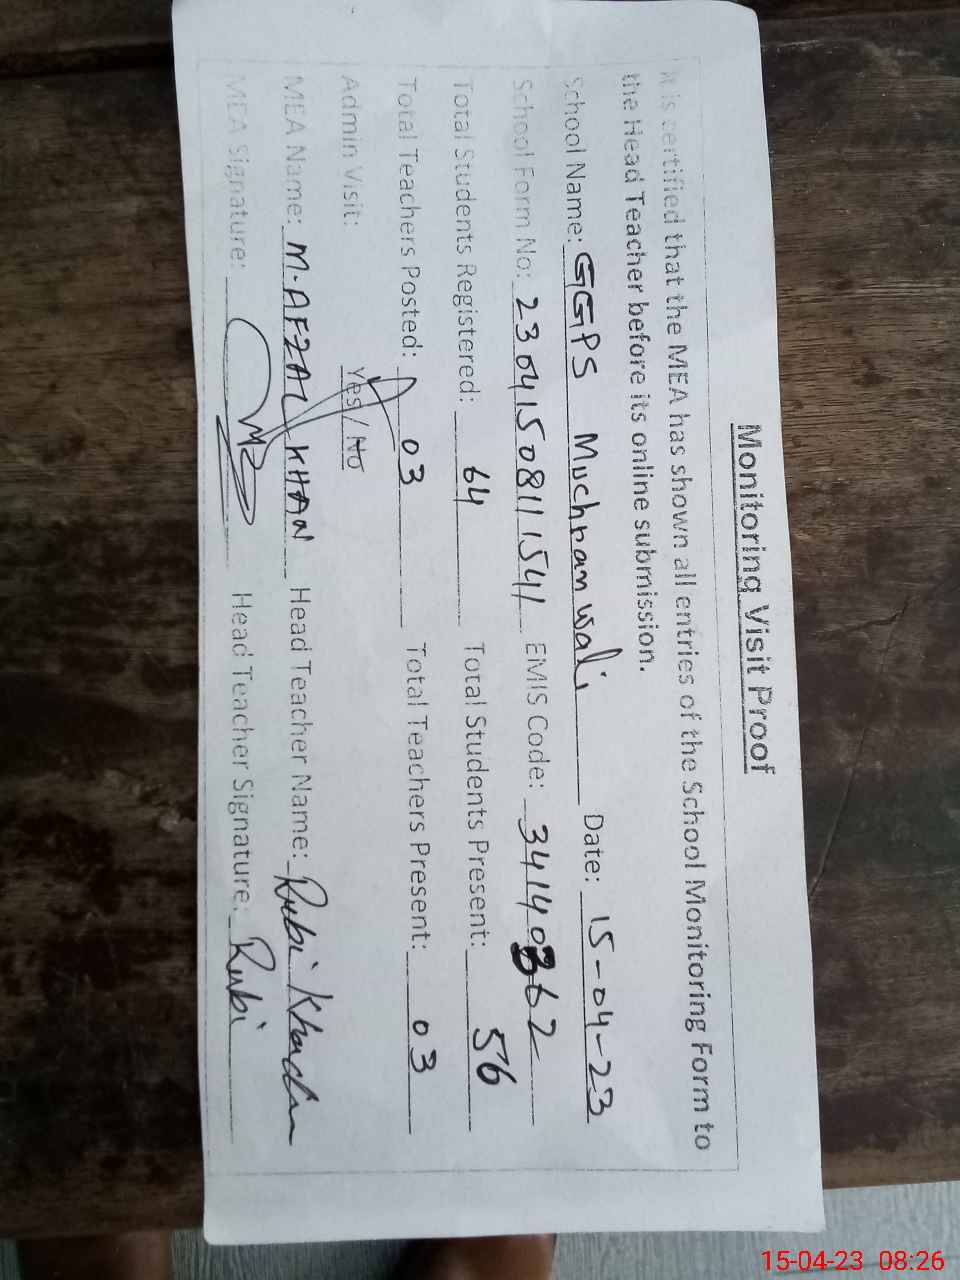 Monitoring Visit Proof
It is certified that the MEA has shown all entries of the School Monitoring Form to
the Head Teacher before its online submission.
School Name: GGPS Muchranwali Date: 15-04-23
School Form No: 2304150811541 EMIS Code: 34140362
Total Students Registered: 64 Total Students Present: 56
Total Teachers Posted: 03 Total Teachers Present: 03
Admin Visit: Yes / No
MEA Name: M. AFZAL KHAN Head Teacher Name: Rubi
MEA Signature: Head Teacher Signature: Rubi
15-04-23 08:26